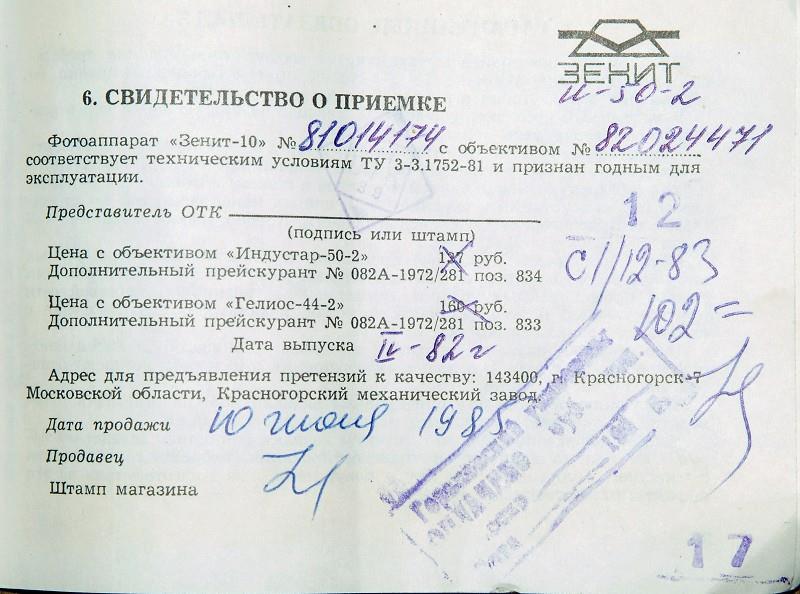 ЗЕНИТ
И-50-2
6. СВИДЕТЕЛЬСТВО О ПРИЕМКЕ
Фотоаппарат «Зенит-10» № 81014174 с объективом № 82024471
соответствует техническим условиям ТУ 3-3.1752-81 и признан годным для
эксплуатации.
Представитель ОТК
(подпись или штамп)
12
Цена с объективом «Индустар-50-2» 127 руб.
Дополнительный прейскурант № 082А-1972/281 поз. 834
С 1/12-83
Цена с объективом «Гелиос-44-2» 160 руб.
Дополнительный прейскурант № 082А-1972/281 поз. 833
102=
Дата выпуска IV-82г
Адрес для предъявления претензий к качеству: 143400, г. Красногорск-7
Московской области, Красногорский механический завод.
Дата продажи 10 июля 1985
Продавец
Штамп магазина
17